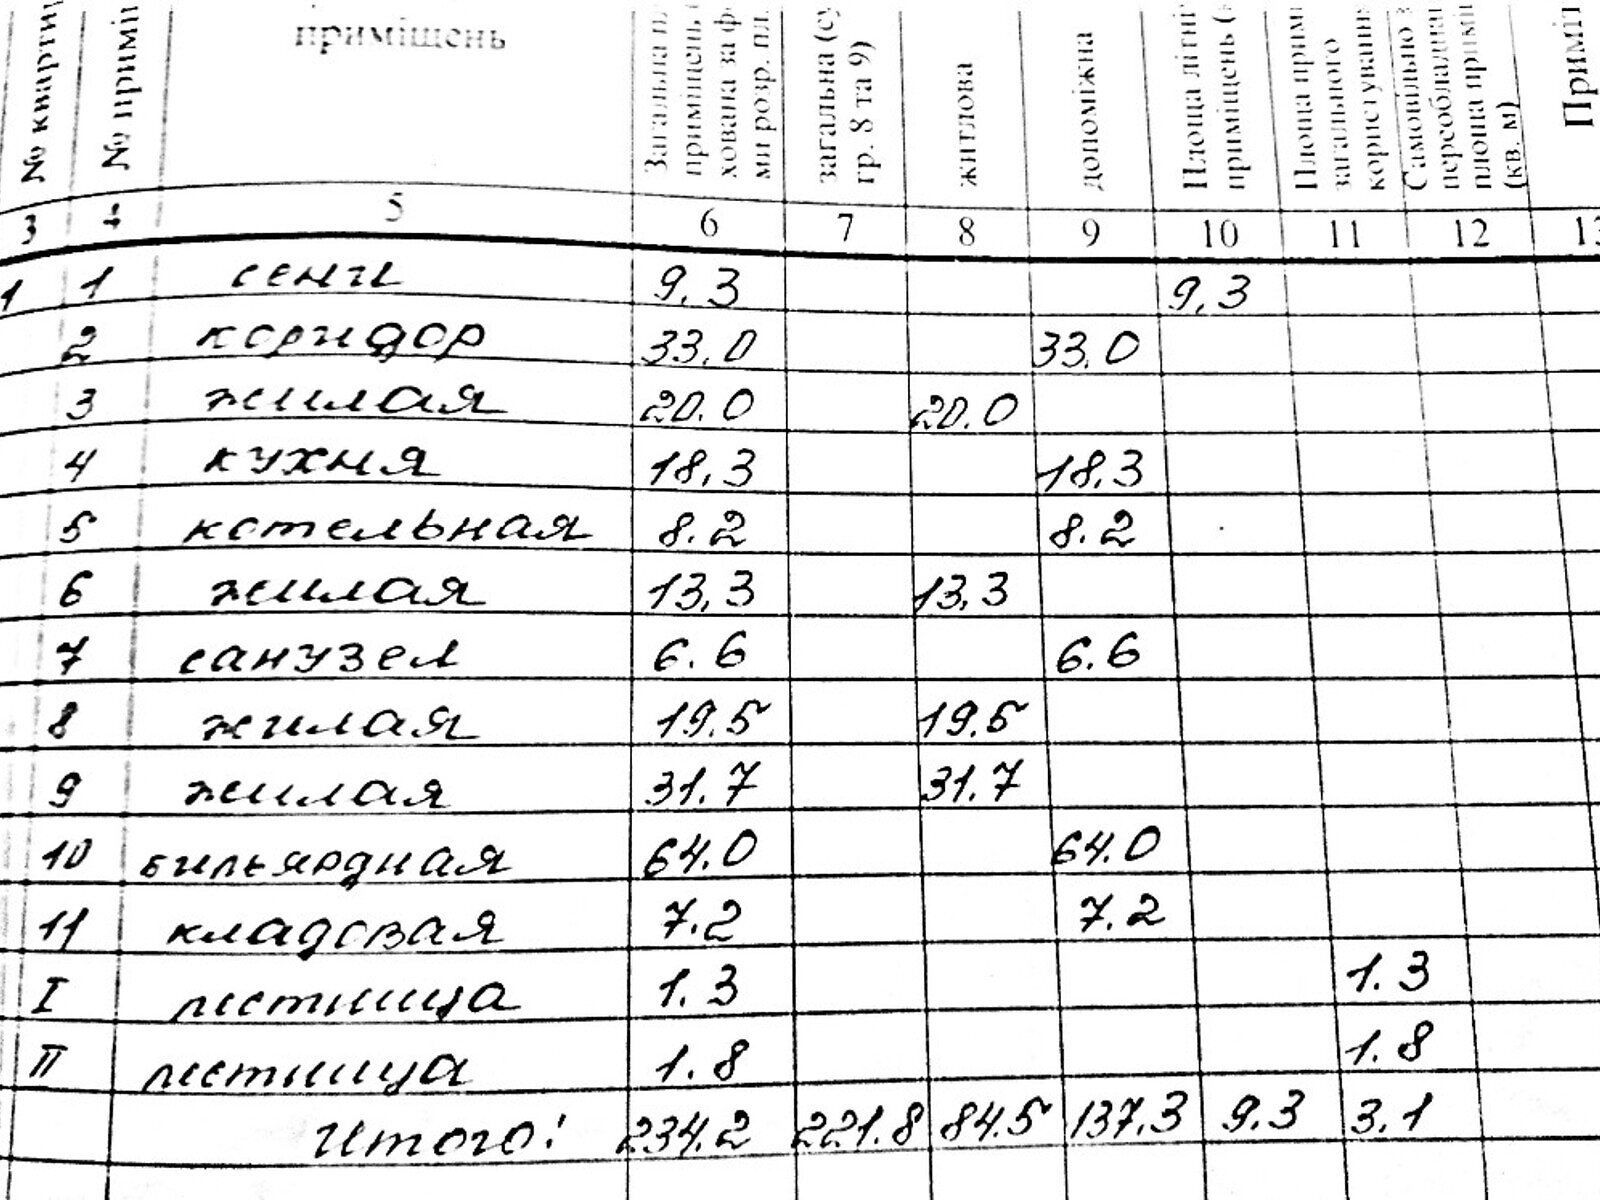 № кварти
№ приміщ
приміщень
Загальна пл
приміщень
хована за ф
ми розр. пл.
загальна (су
гр. 8 та 9)
житлова
допоміжна
Площа літні
приміщень (
Площа примі
загального
користування
Самовільно з
переобладнан
площа примі
(кв. м)
Приміт
3 4 5 6 7 8 9 10 11 12 13
1 1 сени 9.3 9.3
2 коридор 33.0 33.0
3 жилая 20.0 20.0
4 кухня 18.3 18.3
5 котельная 8.2 8.2
6 жилая 13,3 13,3
7 санузел 6.6 6.6
8 жилая 19.5 19.5
9 жилая 31.7 31.7
10 бильярдная 64.0 64.0
11 кладовая 7.2 7.2
I лестница 1.3 1.3
II лестница 1.8 1.8
Итого: 234.2 221.8 84.5 137.3 9.3 3.1